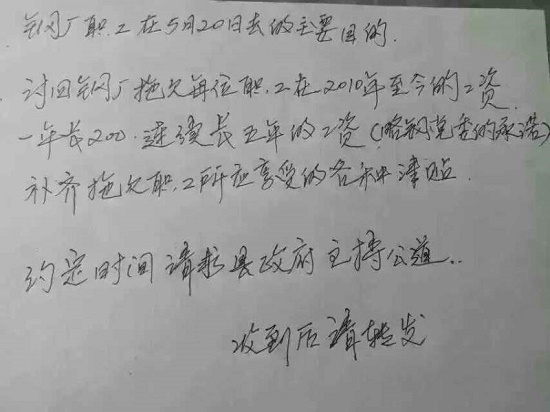 钢厂职工在5月20日去的主要目的.
讨回钢厂拖欠每位职工在2010年至今的工资.
一年长200.连续长五年的工资(略钢党委的承诺)
补齐拖欠职工所应享受的各种津贴.
约定时间请求县政府主持公道..
收到后请转发